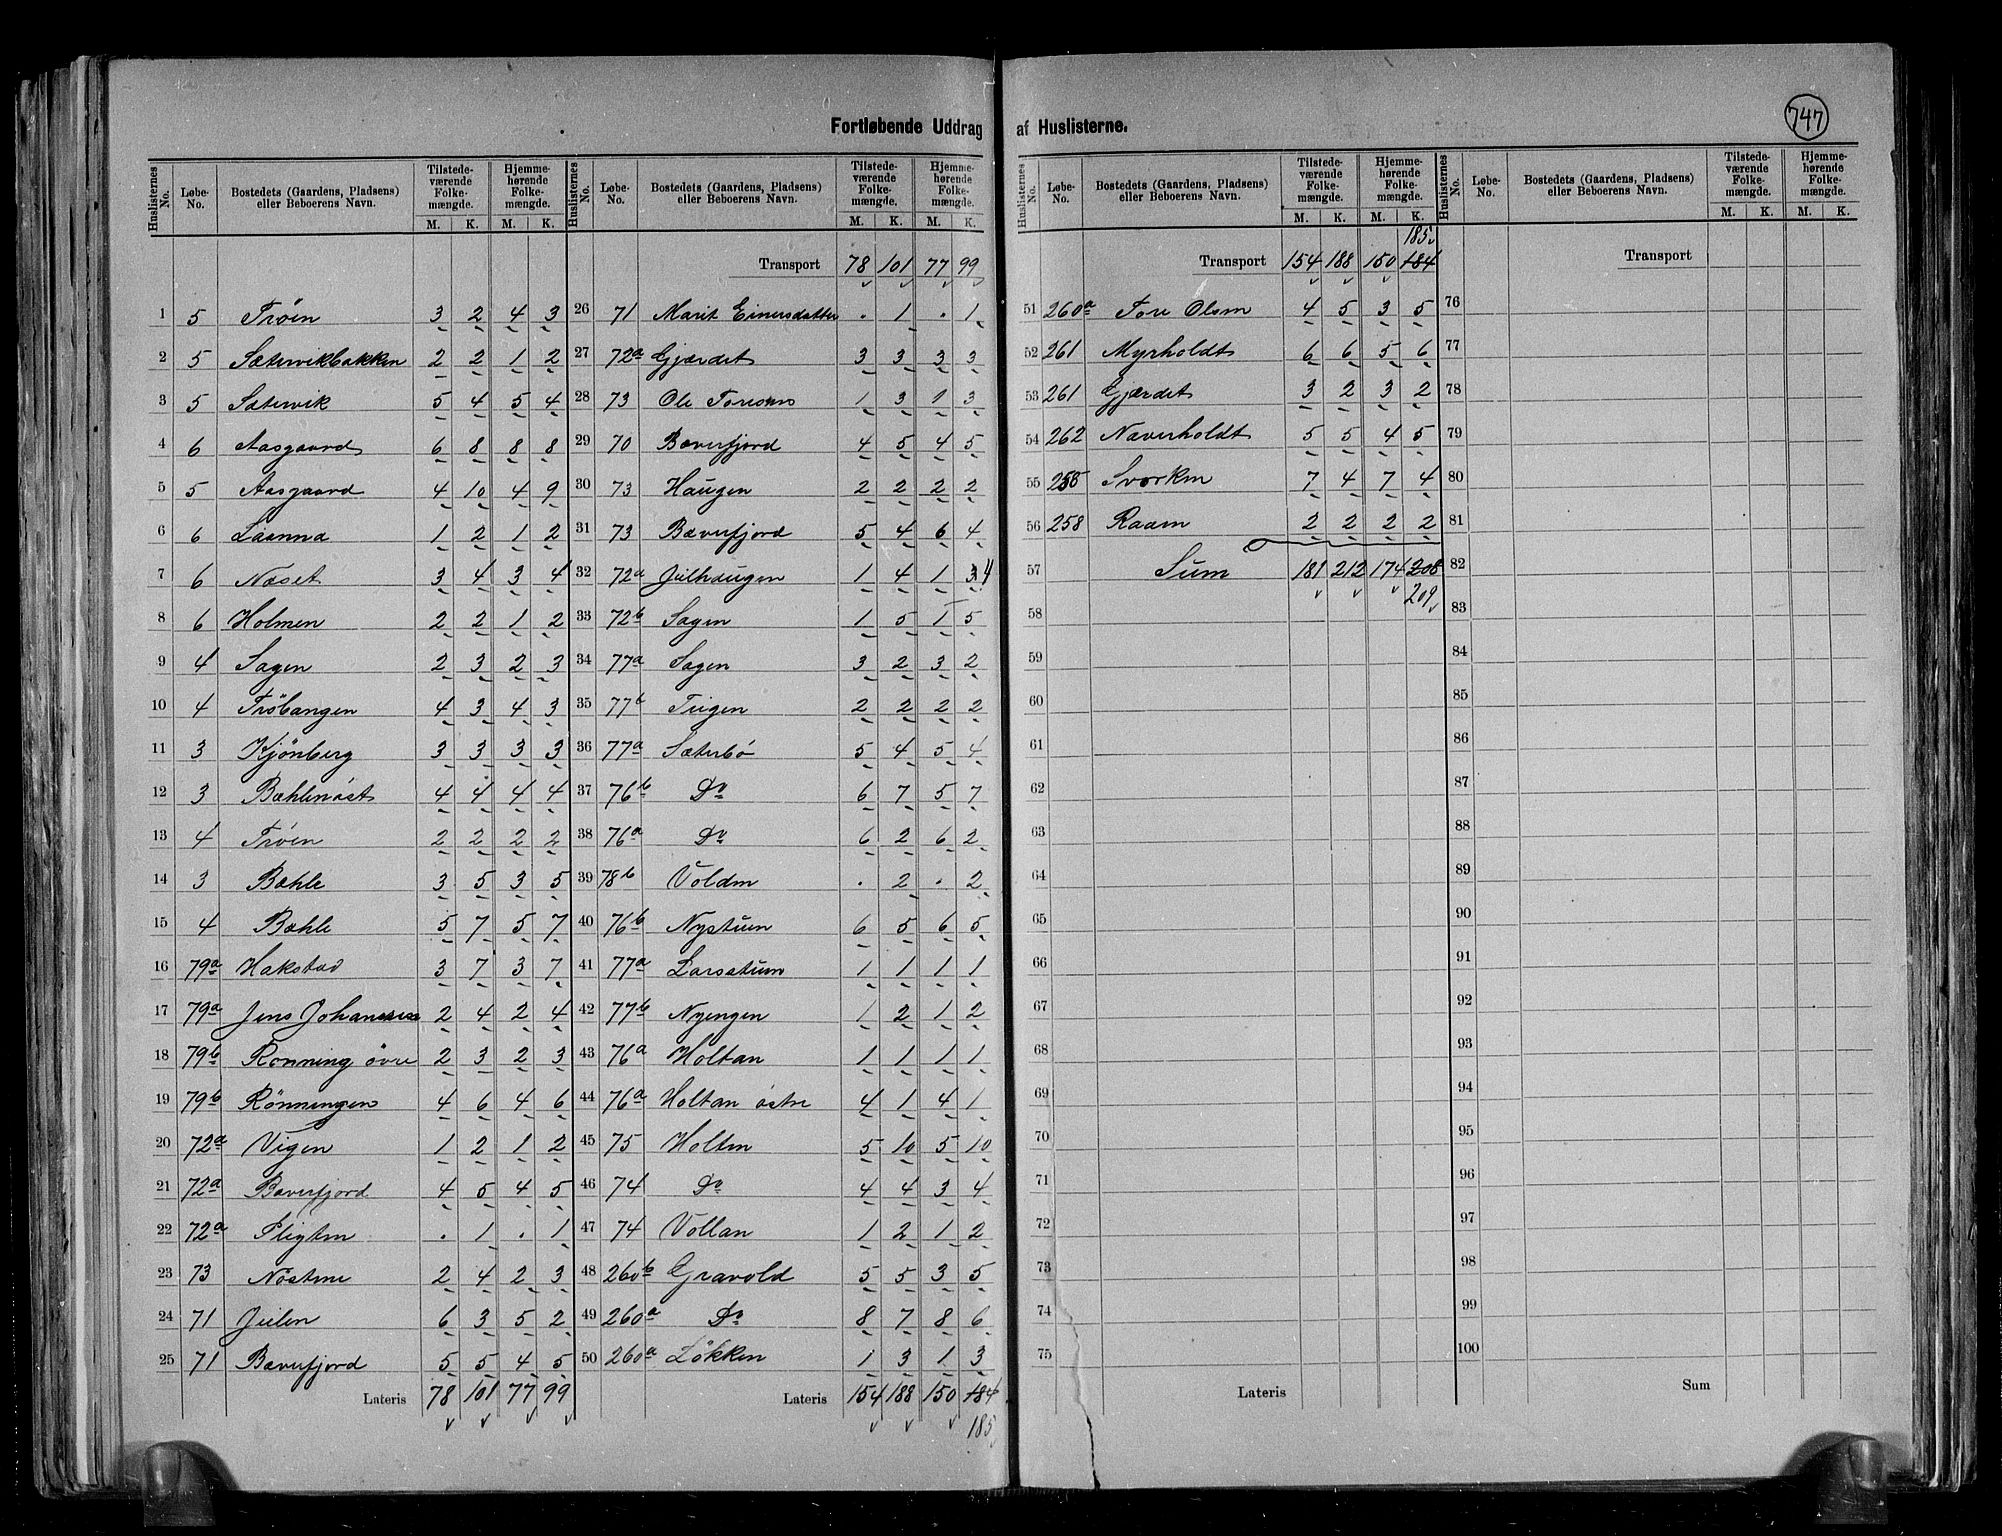 747
Fortløbende Uddrag af Huslisterne.
Huslisternes No. Løbe-No. Bostedets (Gaardens, Pladsens) eller Beboerens Navn. Tilstedeværende Folkemængde. M. K. Hjemmehørende Folkemængde. M. K.
1 5 Trøen 3 2 4 3
2 5 Sætervikbakken 2 2 1 2
3 5 Sætervik 5 4 5 4
4 6 Aasgaard 6 8 8 8
5 5 Aasgaard 4 10 4 9
6 6 Laanna 1 2 1 2
7 6 Næset 3 4 3 4
8 6 Holmen 2 2 1 2
9 4 Sagen 2 3 2 3
10 4 Trøbangen 4 3 4 3
11 3 Kjönberg 3 3 3 3
12 3 Bæhlenøst 4 4 4 4
13 4 Trøen 2 2 2 2
14 3 Bæhle 3 5 3 5
15 4 Bæhle 5 7 5 7
16 79a Hakstad 3 7 3 7
17 79a Jens Johannesen 2 4 2 4
18 79b Rønning øvre 2 3 2 3
19 79b Rønningen 4 6 4 6
20 72a Vigen 1 2 1 2
21 72a Bæverfjord 4 5 4 5
22 72a Pligten . 1 . 1
23 73 Nøstene 2 4 2 3
24 71 Julen 6 3 5 2
25 71 Bæverfjord 5 5 4 5
Lateris 78 101 77 99
Huslisternes No. Løbe-No. Bostedets (Gaardens, Pladsens) eller Beboerens Navn. Tilstedeværende Folkemængde. M. K. Hjemmehørende Folkemængde. M. K.
Transport 78 101 77 99
26 71 Marit Einersdatter . 1 . 1
27 72a Gjærdet 3 3 3 3
28 73 Ole Toresens 1 3 1 3
29 70 Bæverfjord 4 5 4 5
30 73 Haugen 2 2 2 2
31 73 Bæverfjord 5 4 6 4
32 72a Julhaugen 1 4 1 3 4
33 72b Sagen 1 5 1 5
34 77a Sagen 3 2 3 2
35 77b Trigen 2 2 2 2
36 77a Sæterbø 5 4 5 4
37 76b Do 6 7 5 7
38 76a Do 6 2 6 2
39 78b Volden . 2 . 2
40 76b Nystuen 6 5 6 5
41 77a Larsstuen 1 1 1 1
42 77b Nyengen 1 2 1 2
43 76a Holtan 1 1 1 1
44 76a Holtan østre 4 1 4 1
45 75 Holten 5 10 5 10
46 74 Do 4 4 3 4
47 74 Vollan 1 2 1 2
48 260b Gravold 5 5 3 5
49 260a Do 8 7 8 6
50 260a Løkken 1 3 1 3
Lateris 154 188 150 184
185
Huslisternes No. Løbe-No. Bostedets (Gaardens, Pladsens) eller Beboerens Navn. Tilstedeværende Folkemængde. M. K. Hjemmehørende Folkemængde. M. K.
185
Transport 154 188 150 184
51 260a Tore Olsen 4 5 3 5
52 261 Myrholdt 6 6 5 6
53 261 Gjærdet 3 2 3 2
54 262 Næverholdt 5 5 4 5
55 258 Svorken 7 4 7 4
56 258 Raaen 2 2 2 2
57 Sum 181 212 174 208
209
58
59
60
61
62
63
64
65
66
67
68
69
70
71
72
73
74
75
Lateris
Huslisternes No. Løbe-No. Bostedets (Gaardens, Pladsens) eller Beboerens Navn. Tilstedeværende Folkemængde. M. K. Hjemmehørende Folkemængde. M. K.
Transport
76
77
78
79
80
81
82
83
84
85
86
87
88
89
90
91
92
93
94
95
96
97
98
99
100
Sum